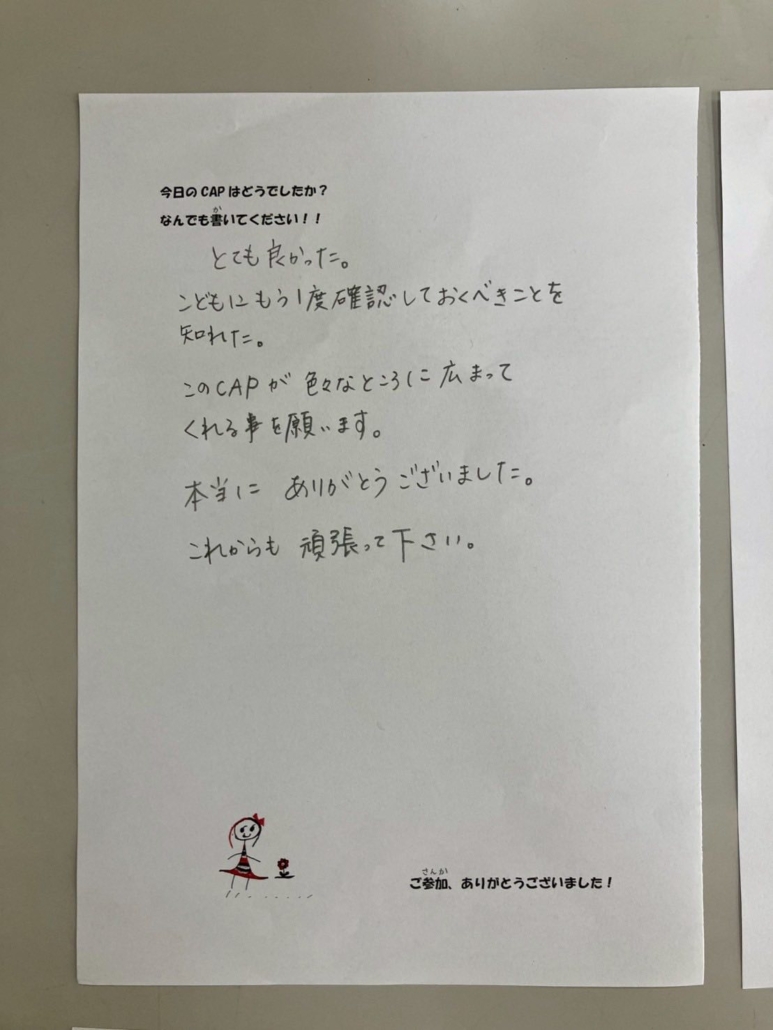 今日のCAPはどうでしたか？
なんでも書いてください！！
とても良かった。
こどもにもう1度確認しておくべきことを
知れた。
このCAPが色々なところに広まって
くれる事を願います。
本当にありがとうございました。
これからも頑張って下さい。
ご参加、ありがとうございました！